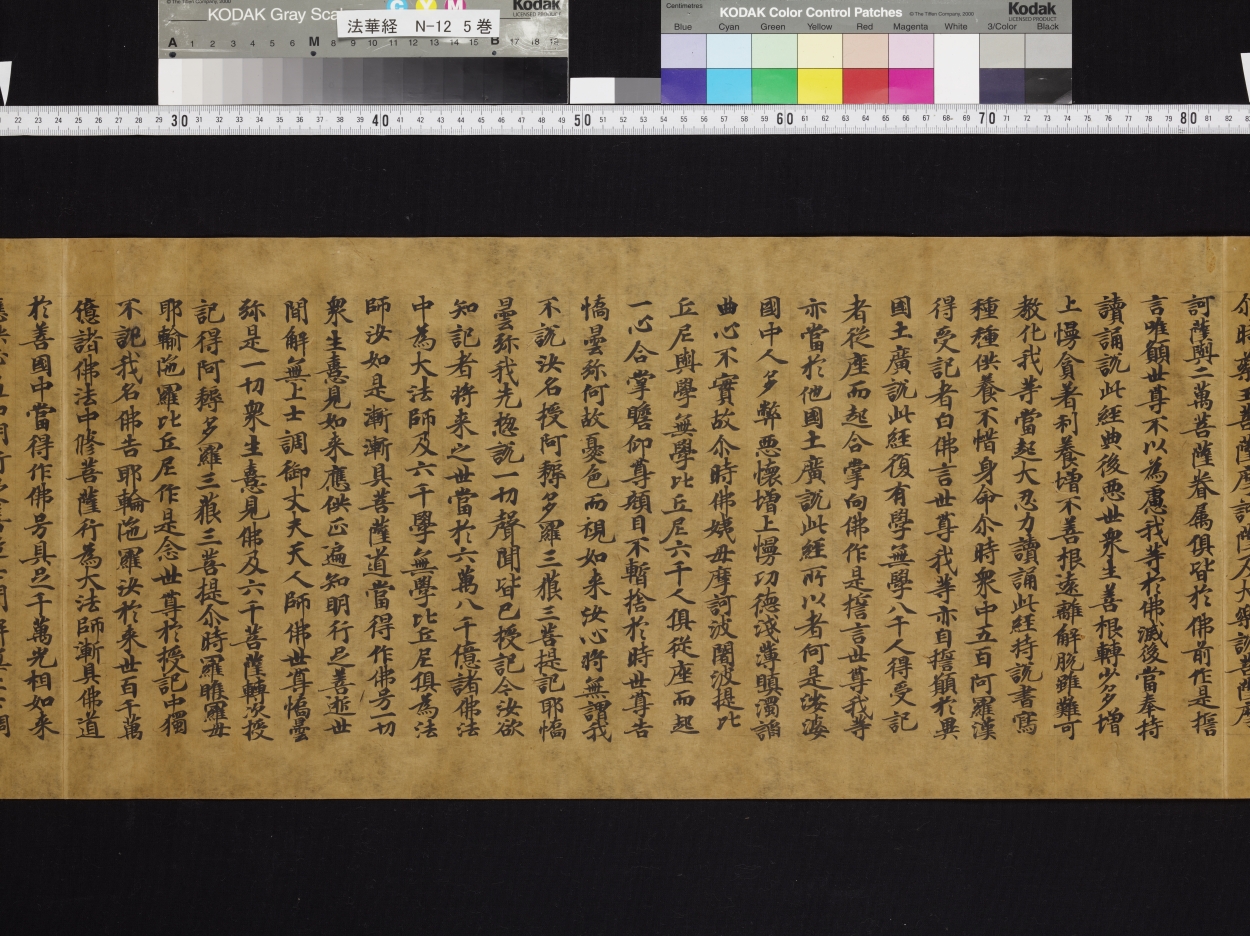 KODAK Gray Scale
法華経 N-12 5巻
Kodak
LICENSED PRODUCT
© The Tiffen Company, 2000
A 1 2 3 4 5 6 M 8 9 10 11 12 13 14 15 B 17 18 19
Centimetres
KODAK Color Control Patches
© The Tiffen Company, 2000
Kodak
LICENSED PRODUCT
Blue Cyan Green Yellow Red Magenta White 3/Color Black
22 23 24 25 26 27 28 29 30 31 32 33 34 35 36 37 38 39 40 41 42 43 44 45 46 47 48 49 50 51 52 53 54 55 56 57 58 59 60 61 62 63 64 65 66 67 68 69 70 71 72 73 74 75 76 77 78 79 80 81 82
尒時藥王菩薩摩訶薩及大樂說菩薩摩
訶薩與二萬菩薩眷属俱皆於佛前作是擔
言唯願世尊不以為慮我等於佛滅後當奉持
讀誦說此經典後惡世衆生善根轉少多增
上慢貪著利養增不善根遠離解脫雖難可
教化我等當起大忍力讀誦此經持說書寫
種種供養不惜身命尒時衆中五百阿羅漢
得受記者白佛言世尊我等亦自誓願於異
國土廣說此經復有學無學八千人得受記
者從座而起合掌向佛作是誓言世尊我等
亦當於他國土廣說此經所以者何是娑婆
國中人多弊惡懷增上慢功德淺薄瞋濁諂
曲心不實故尒時佛姨母摩訶波闍波提比
丘尼與學無學比丘尼六千人俱從座而起
一心合掌瞻仰尊顔目不暫捨於時世尊告
憍曇弥何故憂色而視如来汝心將無謂我
不說汝名授阿耨多羅三藐三菩提記耶憍
曇弥我先揔說一切聲聞皆已授記今汝欲
知記者將来之世當於六萬八千億諸佛法
中為大法師及六千學無學比丘尼俱為法
師汝如是漸漸具菩薩道當得作佛号一切
衆生憙見如来應供正遍知明行足善逝世
間解無上士調御丈夫天人師佛世尊憍曇
弥是一切衆生憙見佛及六千菩薩轉次授
記得阿耨多羅三藐三菩提尒時羅睺羅母
耶輸陁羅比丘尼作是念世尊於授記中獨
不記我名佛告耶輸陁羅汝於来世百千萬
億諸佛法中修菩薩行為大法師漸具佛道
於善國中當得作佛号具足千萬光相如来